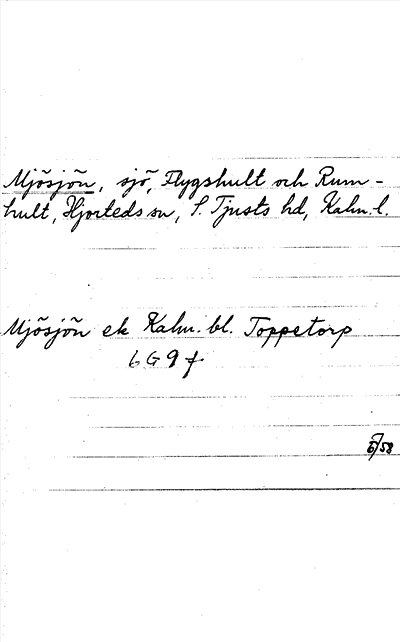 Mjösjön, sjö, Flygshult och Rum-
hult, Hjorteds sn, S. Tjusts hd, Kalm. l.
Mjösjön ek Kalm. bl. Toppetorp
6 G 9 f